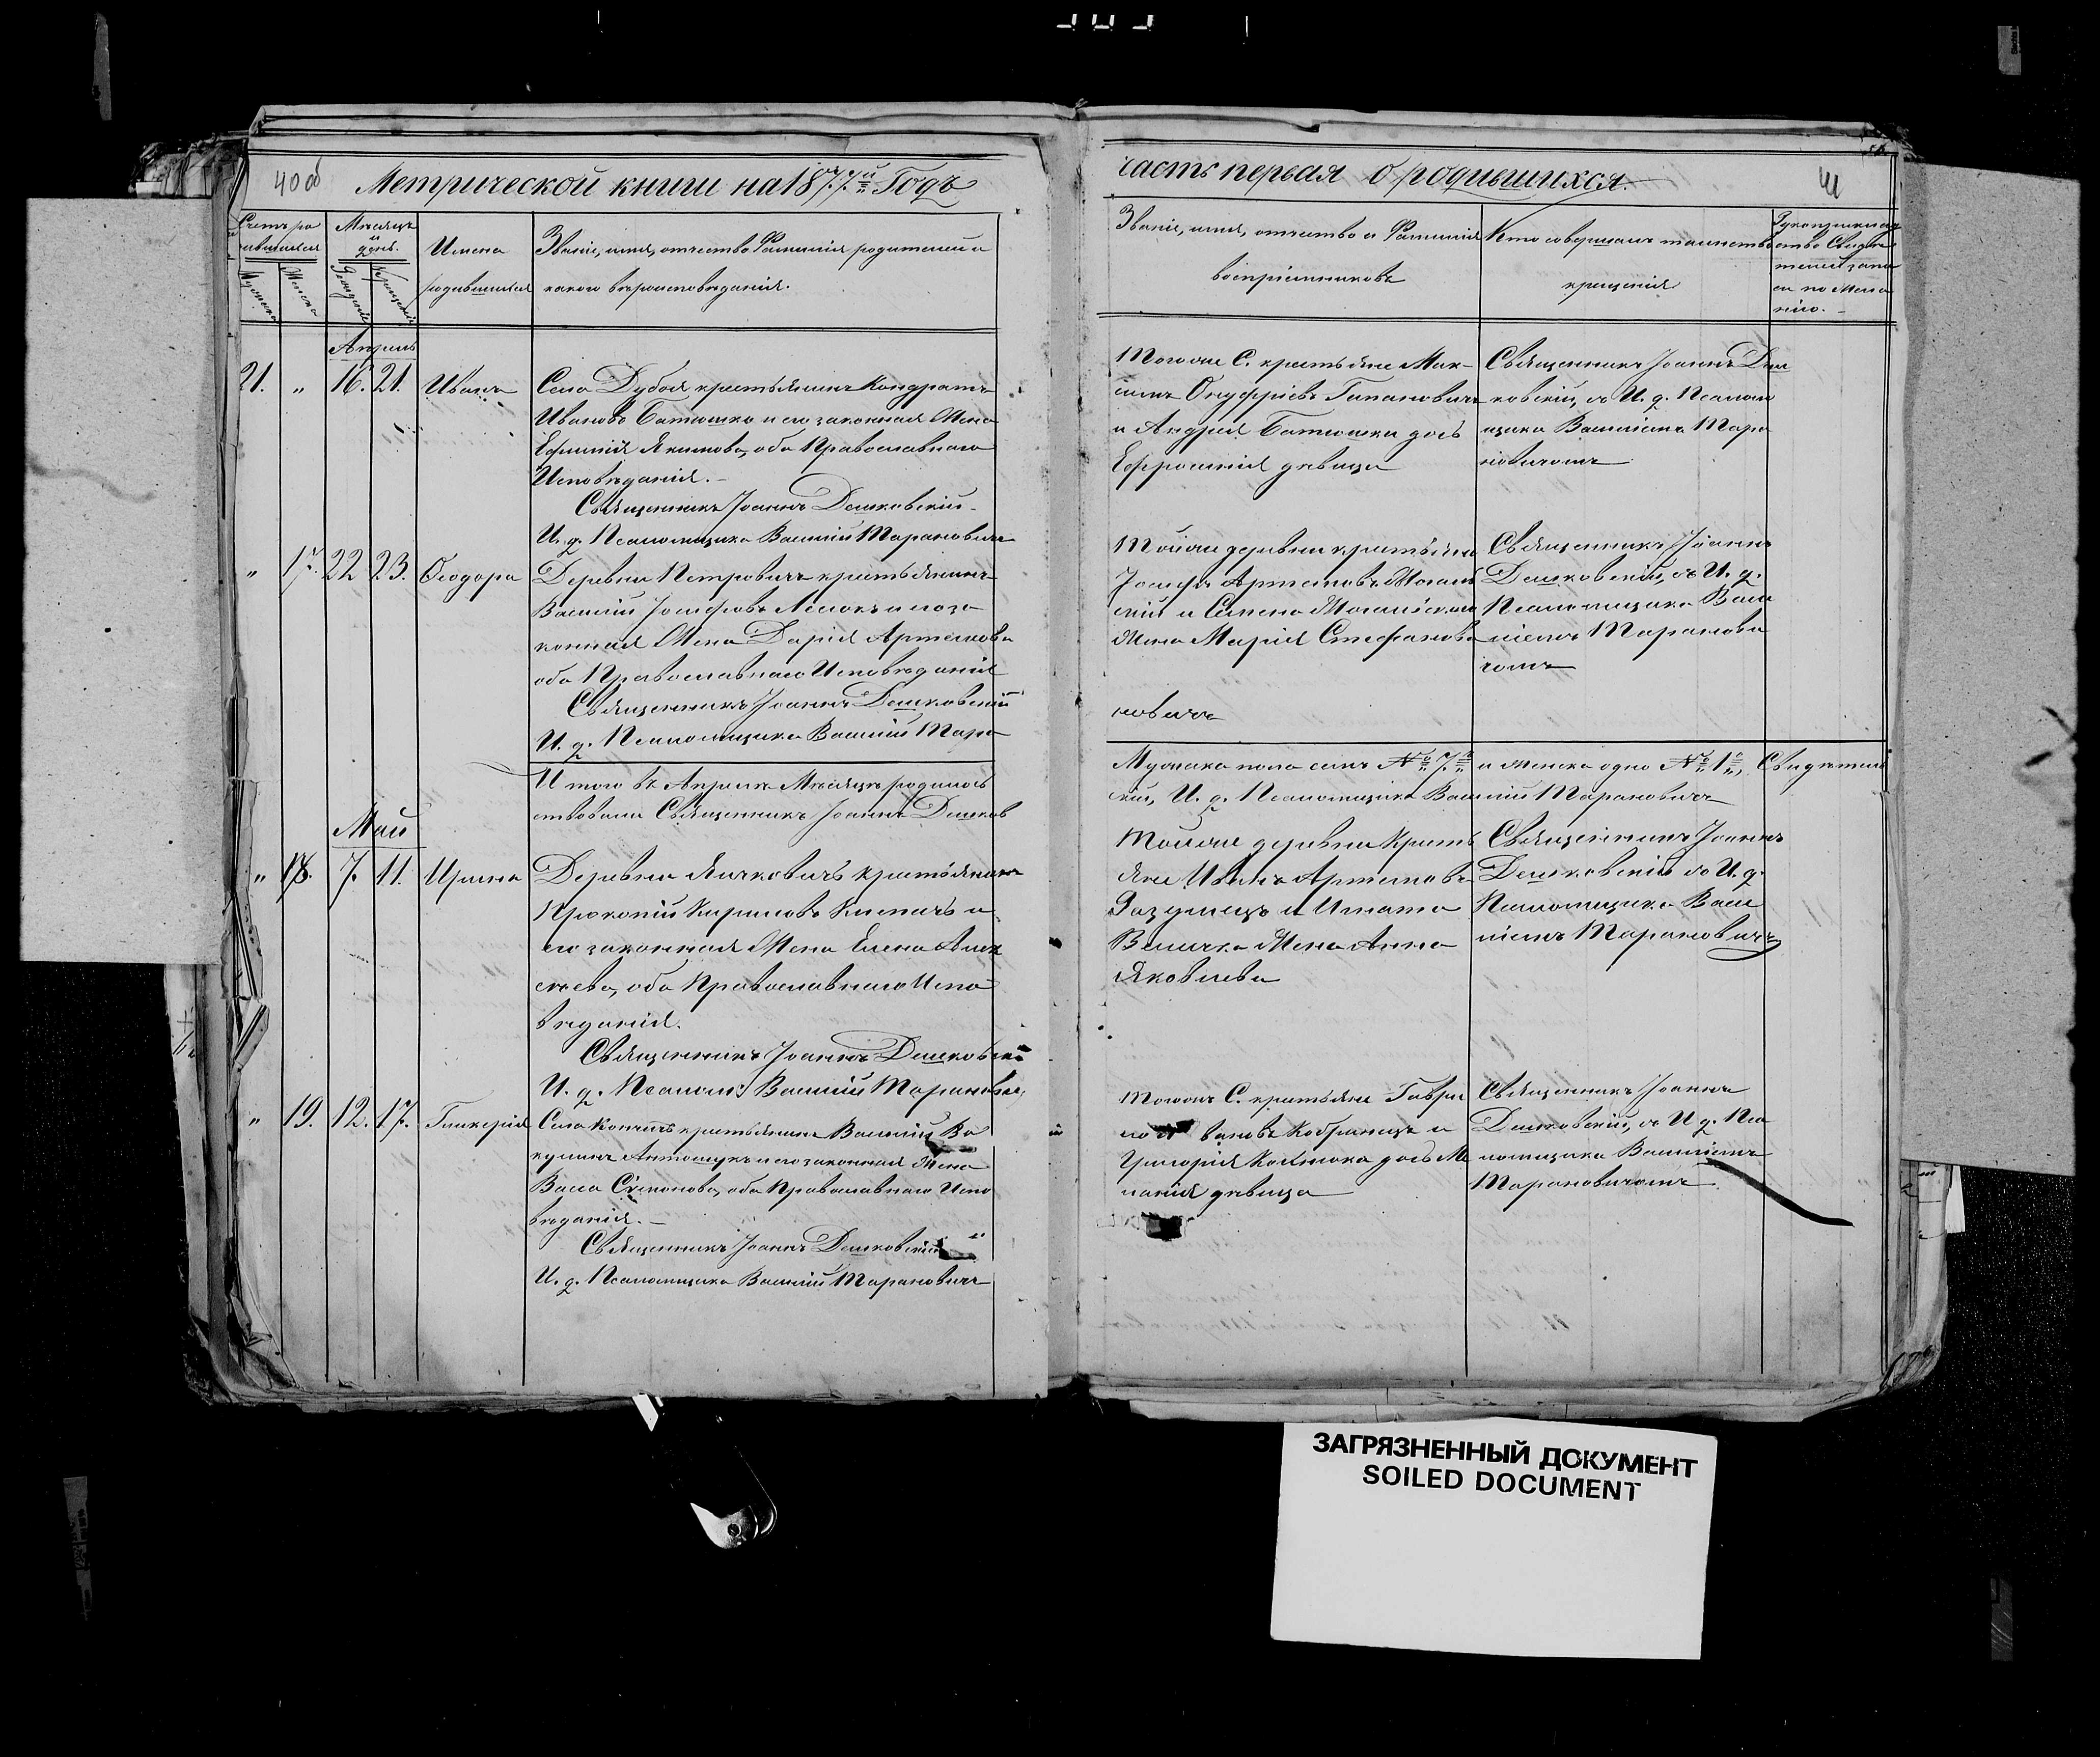 40об
Метрической книги на 1877й Годъ
Счетъ ро
дившихся
Мѣсяцъ
и
день.
Имена
родившихся
Званіе, имя, отчество Фамилія родителей и
какого вѣроисповѣданія.
Апрель
21. „ 16. 21. Иванъ
Села Дубоя крестьянинъ Кондратъ
Ивановъ Батюшко и его законная Жена
Ефимія Якимова, оба Православнаго
Исповѣданія.
Священникъ Іоаннъ Дешковскій
И. д. Псаломщика Василій Тарановичъ
„ 17. 22 23. Ѳеодора
Деревни Петровичъ крестьянинъ
Василій Іосифовъ и его за
конная Жена Дарія Артемова
оба Православнаго Исповѣданія
Священникъ Іоаннъ Дешковскій
И. д. Псаломщика Василій Тара
Итого въ Апрелѣ Мѣсяцѣ родилось
ствовали Священникъ Іоаннъ Дешков
Май
„ 18. 7. 11. Ирина
Деревни Ячковичъ крестьянинъ
Прокопій Кириловъ и
его законная Жена Елена Алек
сѣева, оба Православнаго Испо
вѣданія.
Священникъ Іоаннъ Дешковскій
И. д. Псалом: Василій Тарановичъ
„ 19. 12. 17. Гликерія
Села крестьянинъ Василій
Антошукъ и его законная Жена
Васса Сѵмонова, оба Православнаго Испо
вѣданія.
Священникъ Іоаннъ Дешковскій
И. д. Псаломщика Василій Тарановичъ
часть первая о родившихся.
41
Званіе, имя, отчество и Фамилія
воспріемниковъ
Кто совершалъ таинство
крещенія
Рукоприклад
ство Свидѣ
телей запи
си по Жела
нію.
Тогоже С. крестьяне Мак-
симъ Онуфріевъ Гипановичъ
и Андрея Батюшки дочь
Ефросинія дѣвица
Священникъ Іоаннъ Деш
ковскій, съ И. д. Псалом
щика Василіемъ Тара
новичомъ
Тойже деревни крестьяне
Іосифъ Артемовъ
и Семена
Жена Марія Стефанова
Священникъ Іоаннъ
Дешковскій, съ И. д.
Псаломщика Васи
ліемъ Таранови
чомъ
новичъ
Мужска пола семь №7й и женска одно №1й, Свидѣтель
скій, И. д. Псаломщика Василій Тарановичъ
Тойже деревни Кресть
яне Иванъ Артемовъ
и Игната
Велички Жена Анна
Яковлева
Священникъ Іоаннъ
Дешковскій съ И. д.
Псаломщика Васи
ліемъ Тарановичъ
Тогожъ С. крестьяне Гаври
Кобринецъ и
Григорія дочь Ме
ланія дѣвица
Священникъ Іоаннъ
Дешковскій, съ И д. Пса
ломщика Василіемъ
Тарановичомъ
ЗАГРЯЗНЕННЫЙ ДОКУМЕНТ
SOILED DOCUMENT